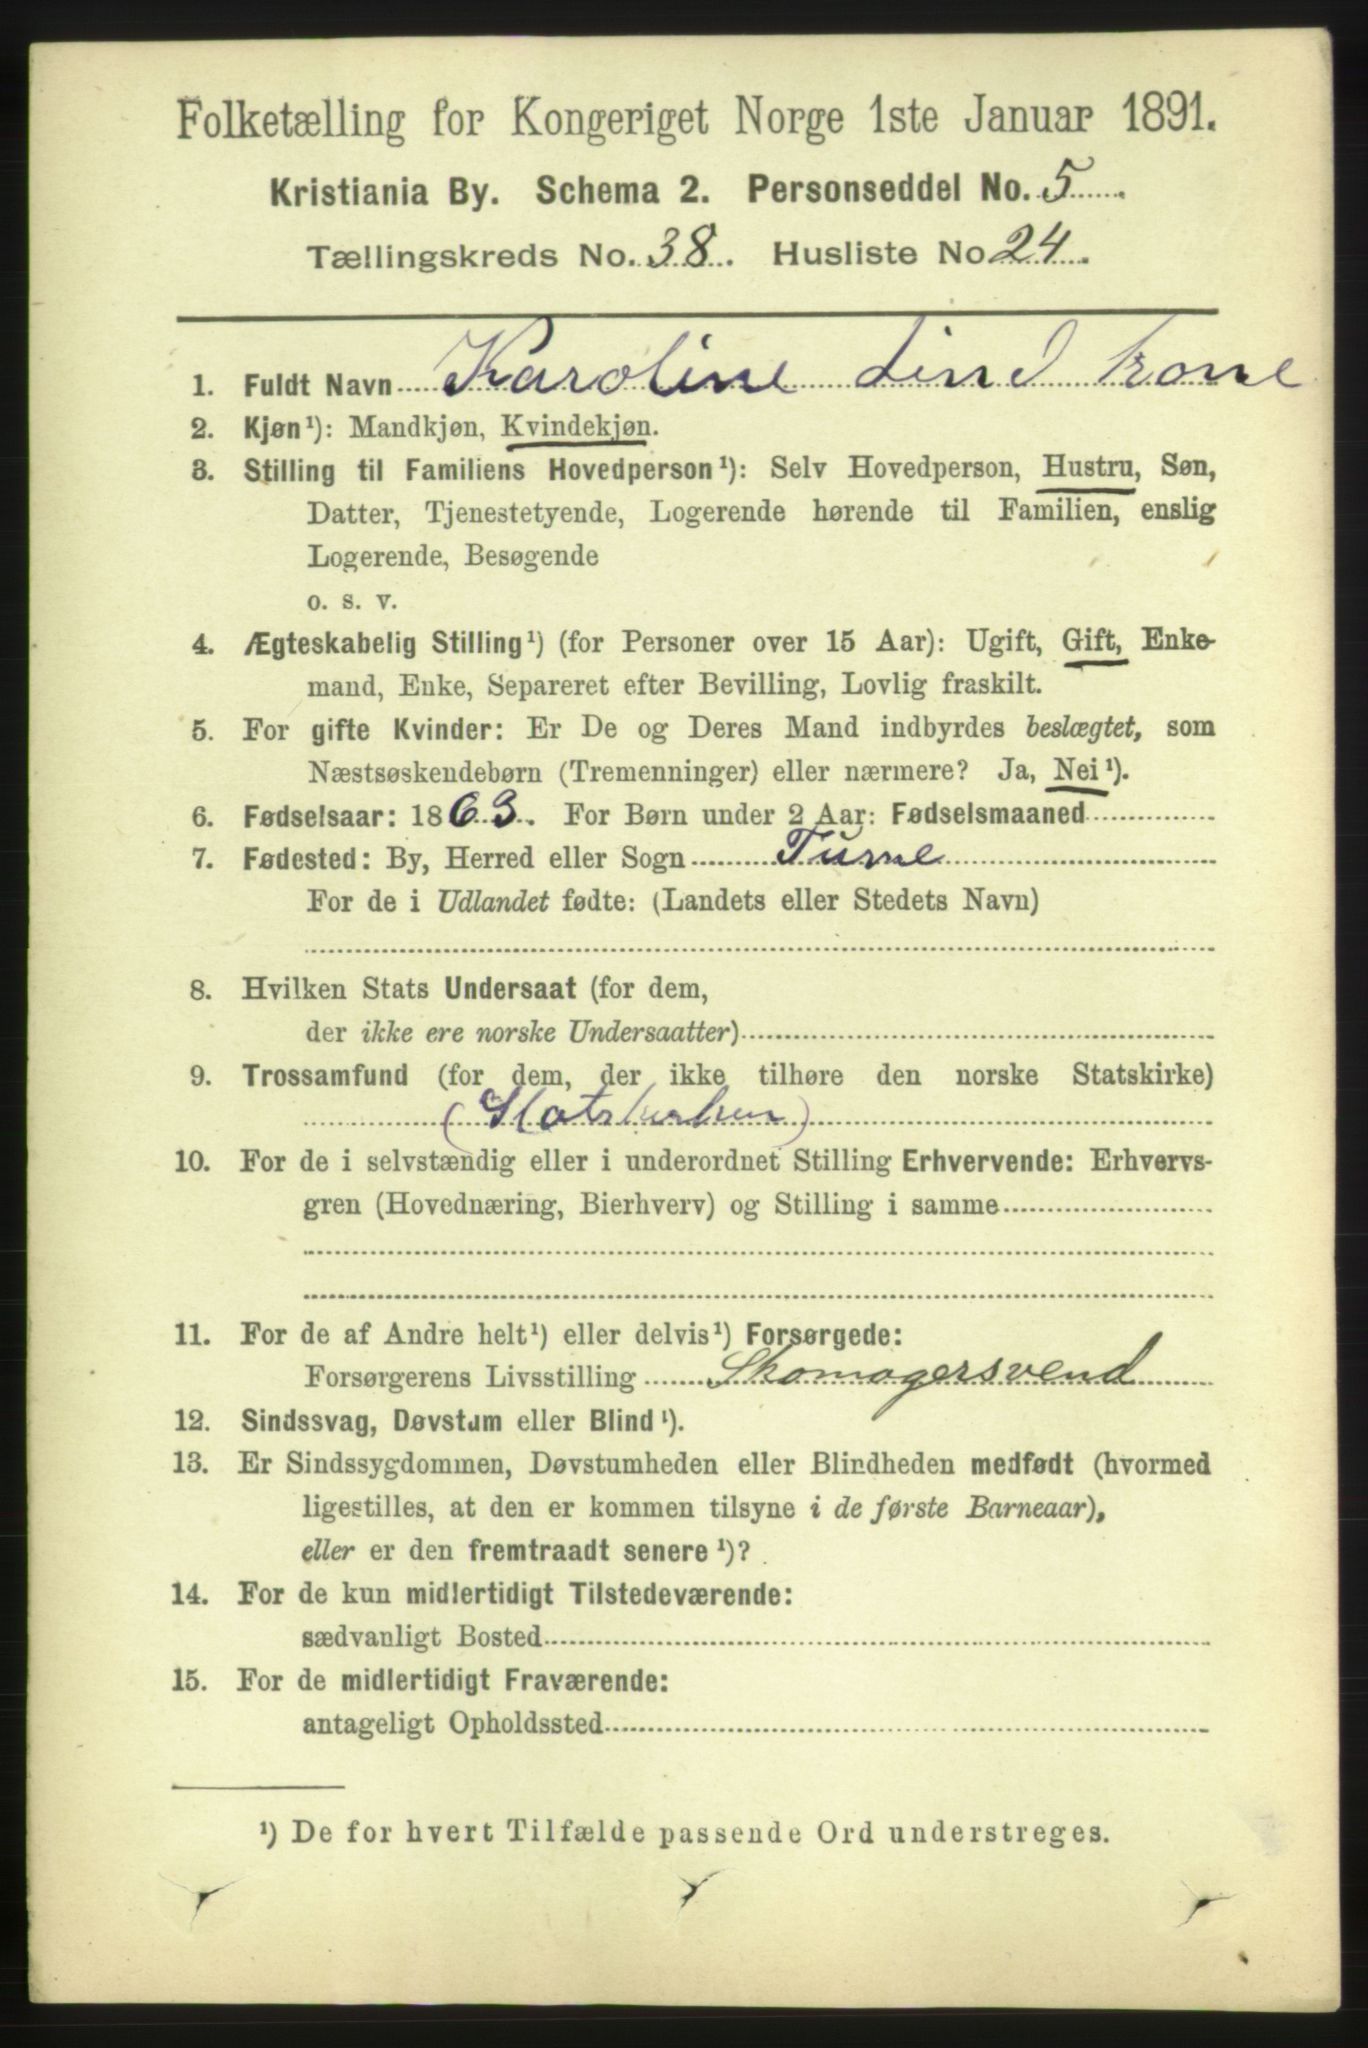 Folketælling for Kongeriget Norge 1ste Januar 1891.
Kristiania By. Schema 2. Personseddel No. 5
Tællingskreds No. 38. Husliste No 24.
1. Fuldt Navn Karoline Lind kone
2. Kjøn¹): Mandkjøn, Kvindekjøn.
3. Stilling til Familiens Hovedperson¹): Selv Hovedperson, Hustru, Søn,
Datter, Tjenestetyende, Logerende hørende til Familien, enslig
Logerende, Besøgende
o. s. v.
4. Ægteskabelig Stilling¹) (for Personer over 15 Aar): Ugift, Gift, Enke-
mand, Enke, Separeret efter Bevilling, Lovlig fraskilt.
5. For gifte Kvinder: Er De og Deres Mand indbyrdes beslægtet, som
Næstsøskendebørn (Tremenninger) eller nærmere? Ja, Nei¹).
6. Fødselsaar: 1863. For Børn under 2 Aar: Fødselsmaaned
7. Fødested: By, Herred eller Sogn Turne
For de i Udlandet fødte: (Landets eller Stedets Navn)
8. Hvilken Stats Undersaat (for dem,
der ikke ere norske Undersaatter)
9. Trossamfund (for dem, der ikke tilhøre den norske Statskirke)
(Statskirken)
10. For de i selvstændig eller i underordnet Stilling Erhvervende: Erhvervs-
gren (Hovednæring, Bierhverv) og Stilling i samme
11. For de af Andre helt¹) eller delvis¹) Forsørgede:
Forsørgerens Livsstilling Skomagersvend
12. Sindssvag, Døvstum eller Blind¹).
13. Er Sindssygdommen, Døvstumheden eller Blindheden medfødt (hvormed
ligestilles, at den er kommen tilsyne i de første Barneaar),
eller er den fremtraadt senere¹)?
14. For de kun midlertidigt Tilstedeværende:
sædvanligt Bosted
15. For de midlertidigt Fraværende:
antageligt Opholdssted
¹) De for hvert Tilfælde passende Ord understreges.